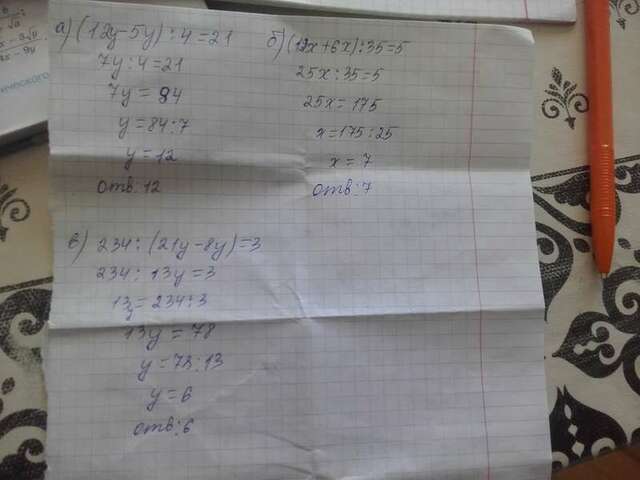 а) (12y-5y):4=21
7y:4=21
7y = 84
y=84:7
y=12
Отв:12
б) (19x+6x):35=5
25x:35=5
25x=175
x=175:25
x=7
Отв:7
в) 234:(21y-8y)=3
234:13y=3
13y=234:3
13y=78
y=78:13
y=6
Отв:6